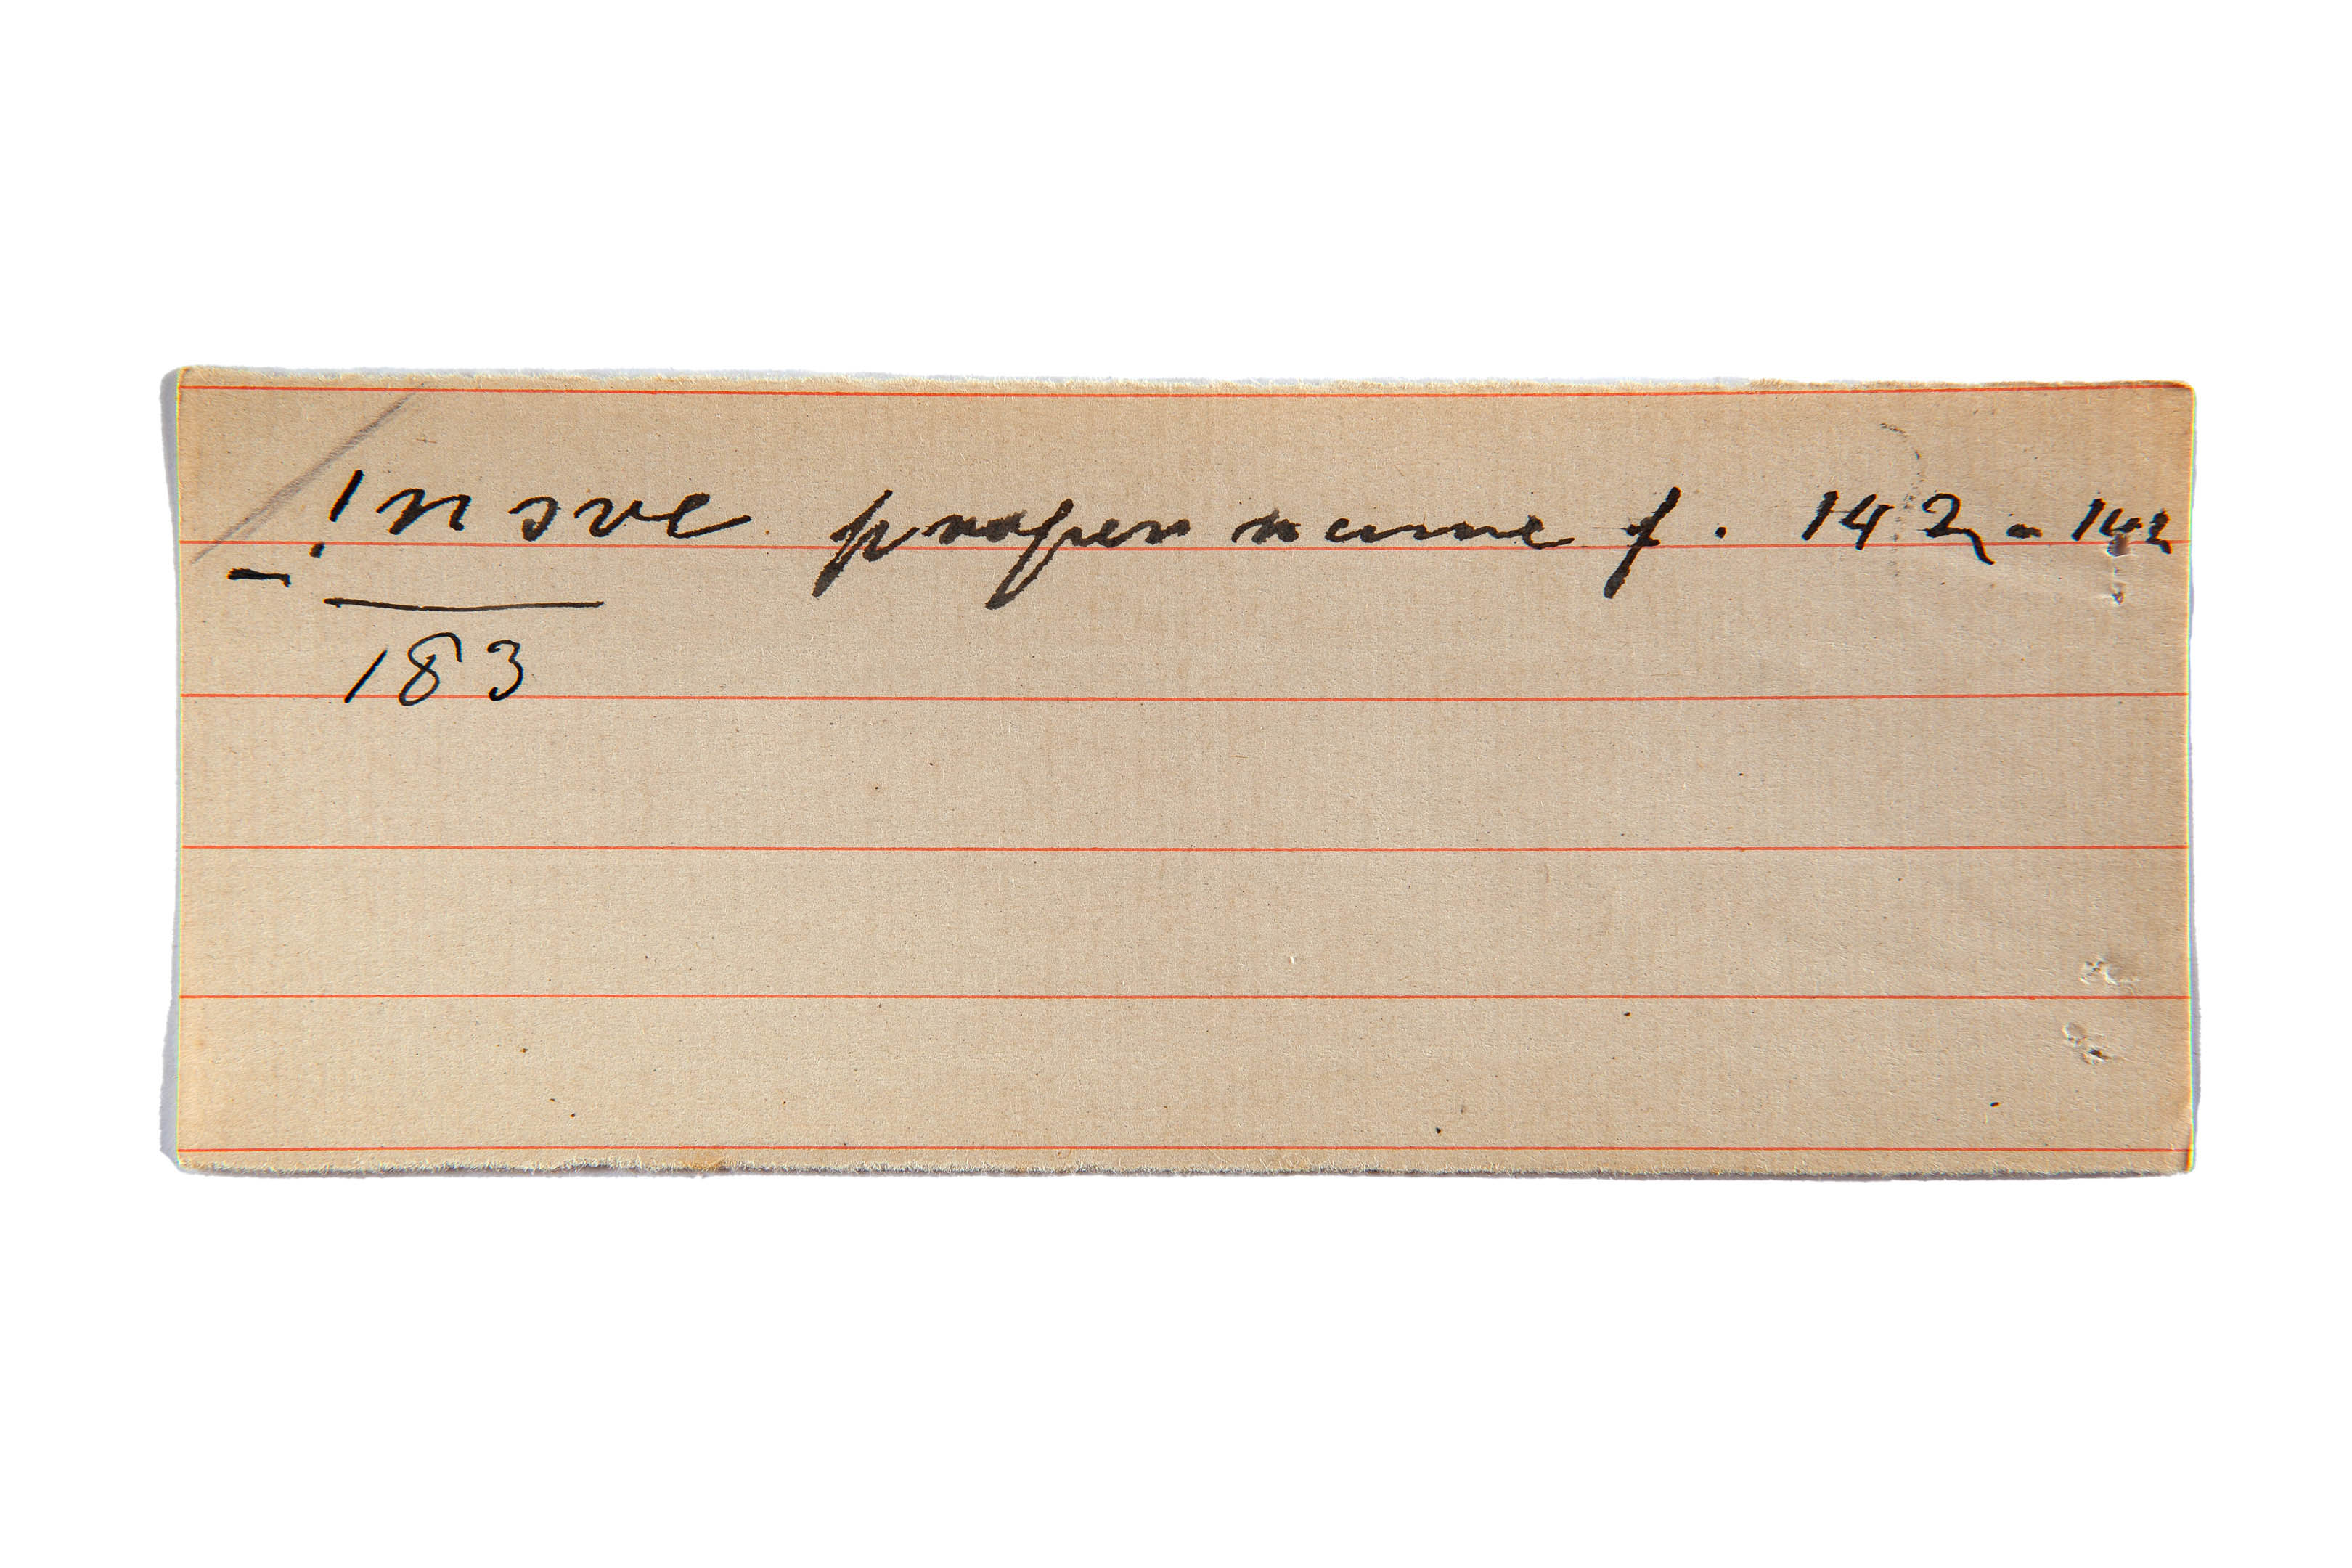 _!nɔve proper name f. 142 - 142
183